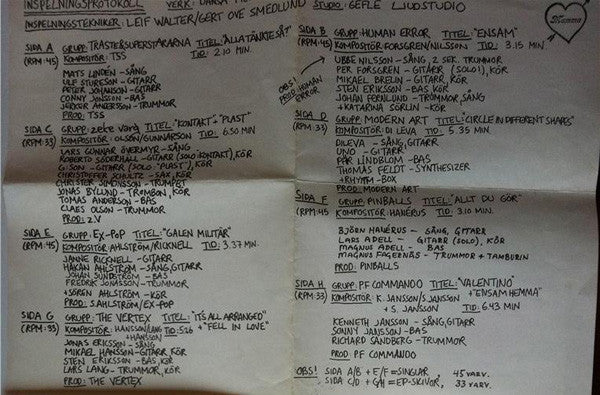 INSPELNINGSPROTOKOLL VERK:
INSPELNINGSTEKNIKER: LEIF WALTER/GERT OVE SMEDLUND STUDIO: GEFLE LJUDSTUDIO
Mamma
SIDA A GRUPP: TRÄSTESUPERSTARARNA TITEL: "ALLA TÄNKTE SÅ"
(RPM:45) KOMPOSITÖR: TSS TID: 2.10 MIN.
MATS LINDÉN - SÅNG
ALF STURESON - GITARR
PETER JOHANSON - GITARR
CONNY JONSSON - BAS
JERKER ANDERSSON - TRUMMOR
PROD: TSS
SIDA C GRUPP: zete varg TITEL: "KONTAKT" & "PLAST"
(RPM:33) KOMPOSITÖR: OLSON/GUNNARSON TID: 6.50 MIN
LARS GUNNAR ÖVERMYR - SÅNG
ROBERTO SÖDERHÄLL - GITARR (SOLO KONTAKT), KÖR
GISON - GITARR (SOLO "PLAST"), KÖR
CHRISTOFFER SCHULTZ - SAX, KÖR
CHRISTER SIMONSSON - TRUMPET
JONAS BYLUND - TROMBON, KÖR
TOMAS ANDERSON - BAS
CLAES OLSON - TRUMMOR
PROD: Z.V
SIDA E GRUPP: EX-POP TITEL: "GALEN MILITÄR"
(RPM:45) KOMPOSITÖR: AHLSTRÖM/RICKNELL TID: 3.37 MIN.
JANNE RICKNELL - SÅNG
HÅKAN AHLSTRÖM - SÅNG, GITARR
JOHAN SUNDSTRÖM - BAS
FREDRIK JONASSON - TRUMMOR
+SÖREN AHLSTRÖM - KÖR
PROD: S.AHLSTRÖM/EX-POP
SIDA G GRUPP: THE VERTEX TITEL: "ITS ALL ARRANGED"
(RPM:33) KOMPOSITÖR: HANSSON/LANG +HANSSON TID: 5:26 + "FELL IN LOVE"
JONAS ERIKSSON - SÅNG
MIKAEL HANSSON - GITARR, KÖR
STEN ERIKSSON - BAS, KÖR
LARS LANG - TRUMMOR, KÖR
PROD: THE VERTEX
SIDA B GRUPP: HUMAN ERROR TITEL: "ENSAM"
(RPM:45) KOMPOSITÖR: FORSGREN/NILSSON TID: 3.15 MIN.
OBS! PROD: HUMAN ERROR
UBBE NILSSON - SÅNG, 2 SEK. TRUMMOR
PER FORSGREN - GITARR (SOLO!), KÖR
MIKAEL BRELIN - GITARR, KÖR
STEN ERIKSSON - BAS, KÖR
JOHAN FERNLUND - TROMMOR, SÅNG
+KATARINA SÖRLIN - KÖR
SIDA D GRUPP: MODERN ART TITEL: "CIRCLE IN DIFFERENT SHAPES"
(RPM:33) KOMPOSITÖR: DI LEVA TID: 5.35 MIN
DILEVA - SÅNG, GITARR
UNO - GITARR
PÄR LINDBLOM - BAS
THOMAS FELDT - SYNTHESIZER
+RHYTM-BOX
PROD: MODERN ART
SIDA F GRUPP: PINBALLS TITEL: "ALLT DU GÖR"
(RPM:45) KOMPOSITÖR: HANÉRUS TID: 3.10 MIN.
BJÖRN HANÉRUS - SÅNG, GITARR
LARS ADELL - GITARR (SOLO), KÖR
MAGNUS ADELL - BAS
MAGNUS FAGERNÄS - TRUMMOR + TAMBURIN
PROD: PINBALLS
SIDA H GRUPP: PF COMMANDO TITEL: "VALENTINO"
(RPM:33) KOMPOSITÖR: K. JANSSON/S JANSSON + "ENSAM HEMMA"
+ S. JANSSON TID: 6.43 MIN
KENNETH JANSSON - SÅNG, GITARR
SONNY JANSSON - BAS
RICHARD SANDBERG - TRUMMOR
PROD PF COMMANDO
OBS! SIDA A/B + E/F = SINGLAR, 45 VARV.
SIDA C/D + G/H = EP-SKIVOR, 33 VARV.